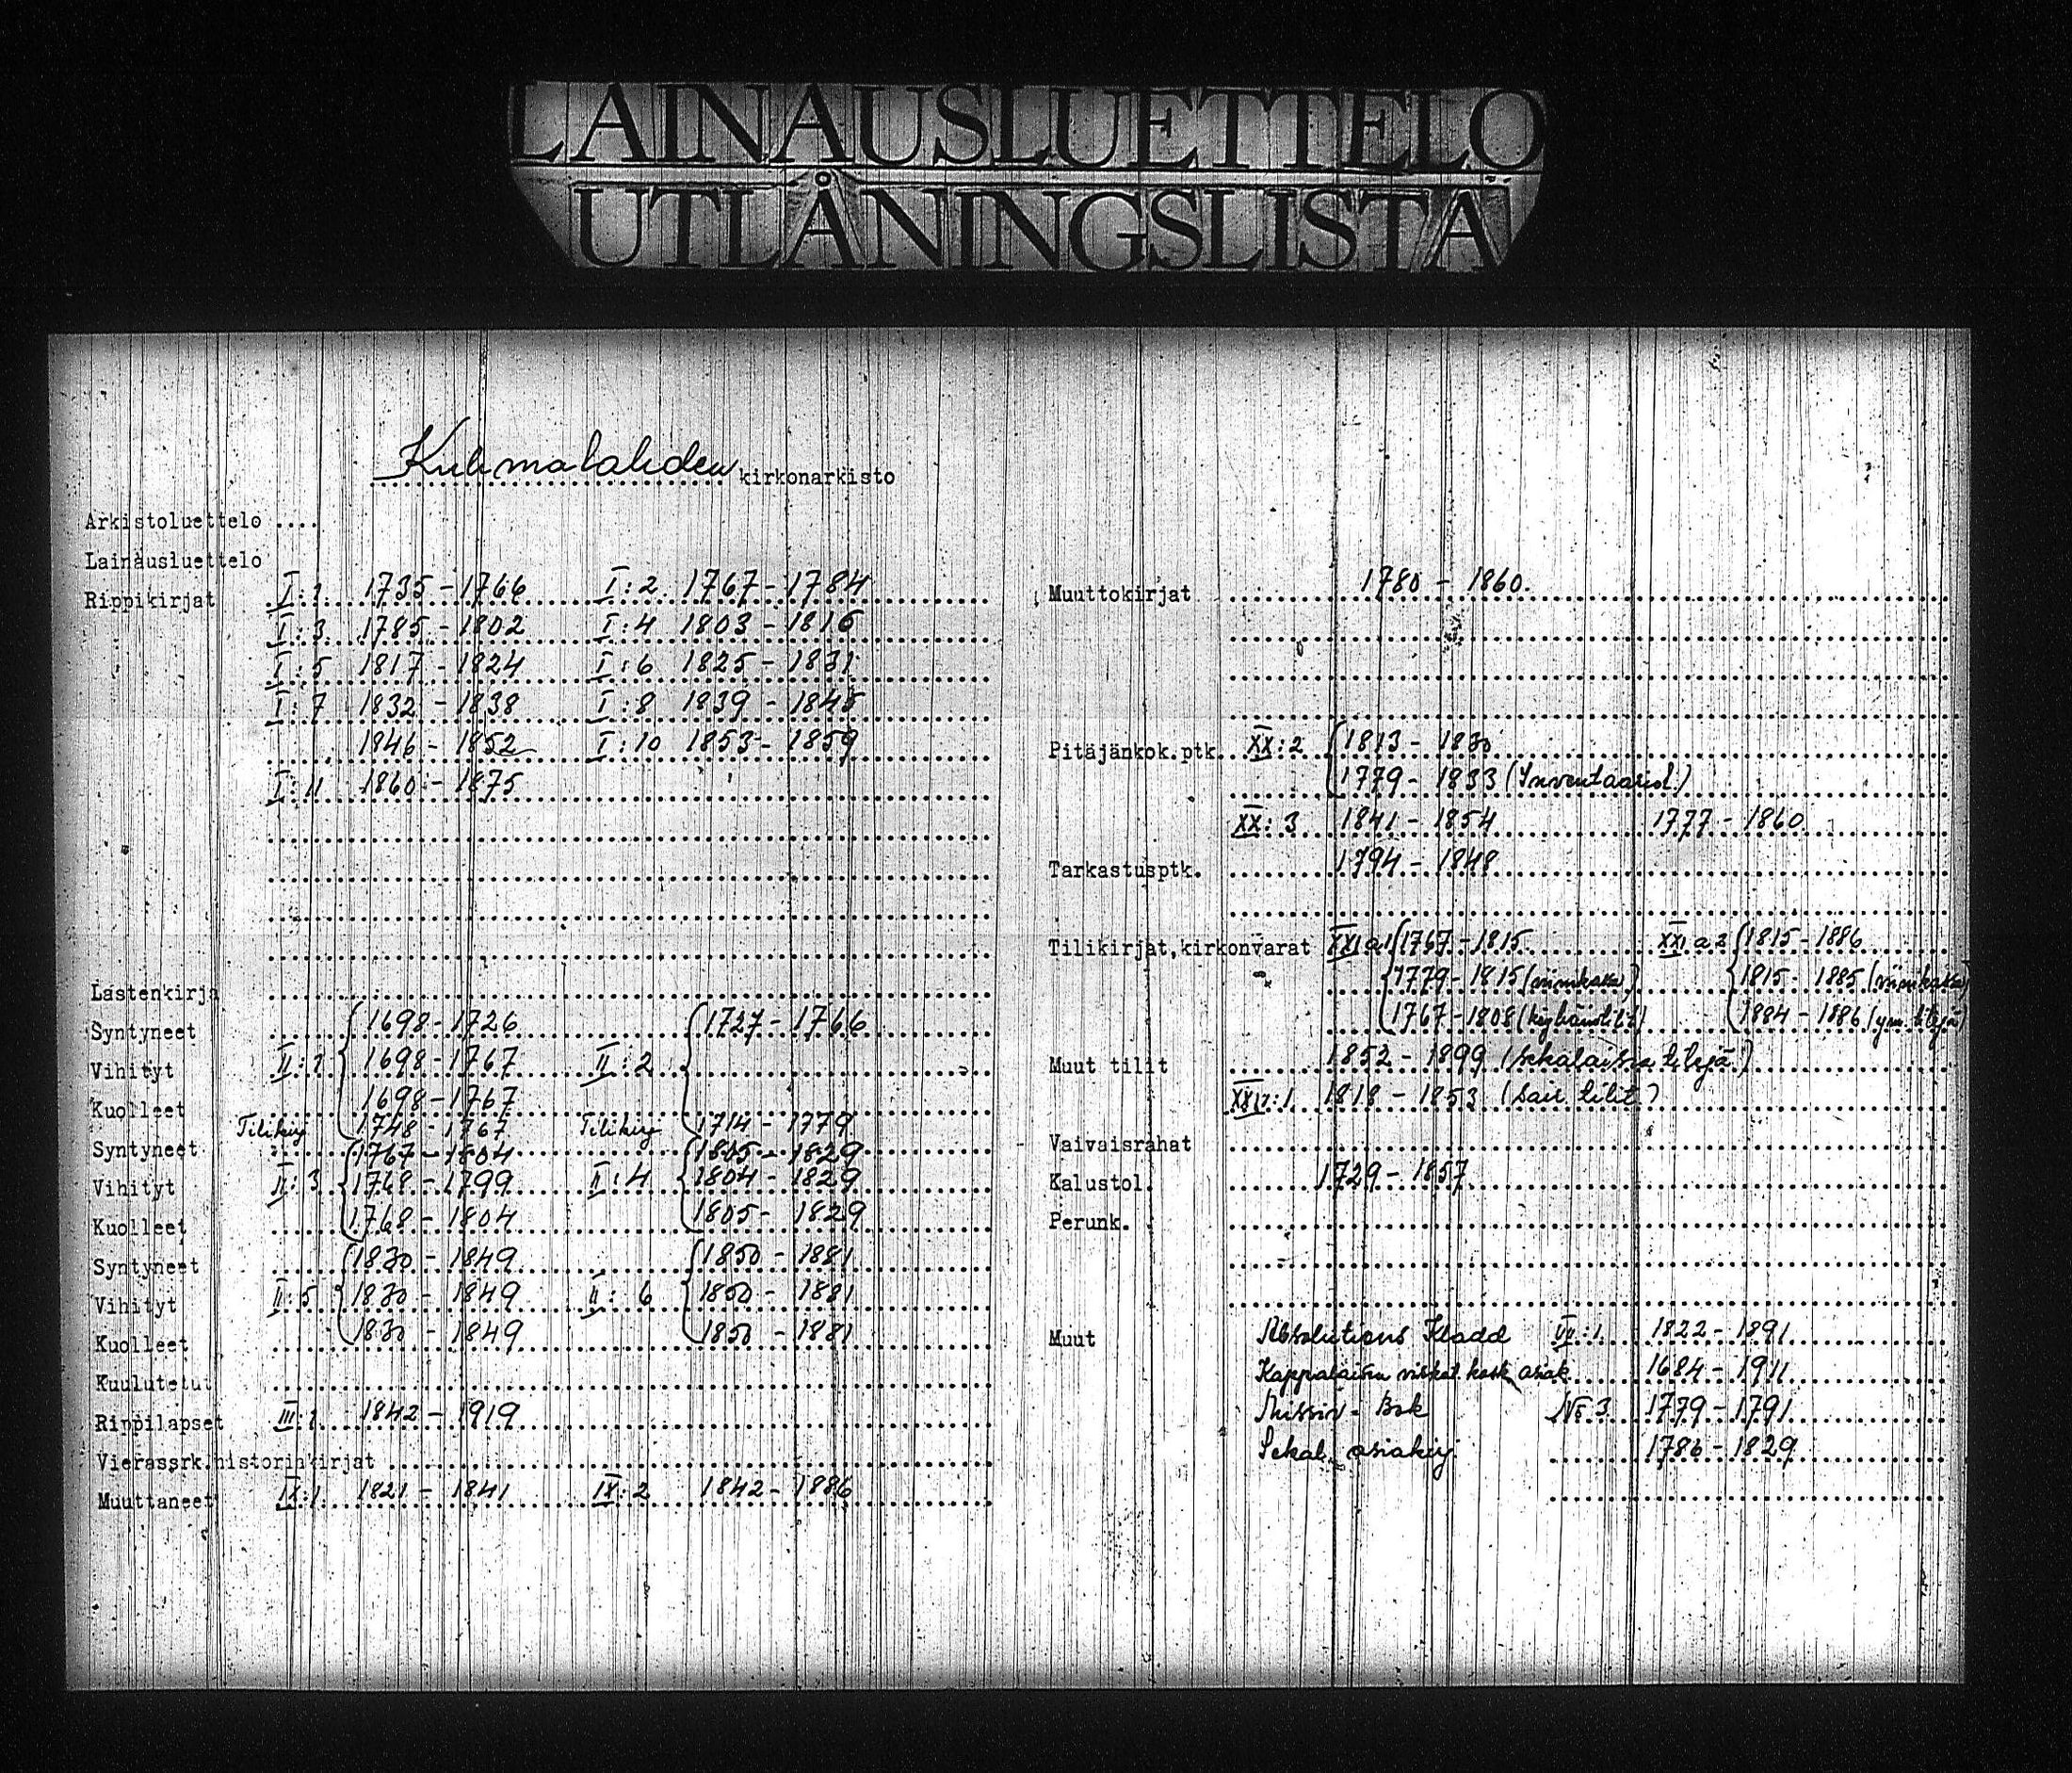 LAINAUSLUETTELO
UTLÅNINGSLISTA
Kuhmalahden kirkonarkisto
Arkistoluettelo ....
Lainausluettelo
Rippikirjat I:1 1735-1766 I:2 1767-1784
I:3 1785-1802 I:4 1803-1816
I:5 1817-1824 I:6 1825-1831
I:7 1832-1838 I:8 1839-1845
1846-1852 I:10 1853-1859
I:11 1860-1875
Lastenkirja
Syntyneet 1698-1726 1727-1766
Vihityt II:1 1698-1767 II:2
Kuolleet 1698-1767
Tilikirj 1748-1767 Tilikirj 1714-1779
Syntyneet 1767-1804 1805-1829
Vihityt II:3 1768-1799 II:4 1804-1829
Kuolleet 1768-1804 1805-1829
Syntyneet 1830-1849 1850-1881
Vihityt II:5 1830-1849 II:6 1850-1881
Kuolleet 1830-1849 1850-1881
Kuulutetut
Rippilapset III:1 1842-1919
Vierassrk.historiakirjat
Muuttaneet IX:1 1821-1841 IX:2 1842-1886
Muuttokirjat 1780-1860
Pitäjänkok.ptk. XX:2 1813-1830
1779-1833 (Inventaariot)
XX:3 1841-1854 1777-1860
Tarkastusptk. 1794-1848
Tilikirjat,kirkonvarat XXI a1 1767-1815 XXI a2 1815-1886
1779-1815 (viinikassa) 1815-1885 (viinikassa)
1767-1808 1884-1886 (ym. tilejä)
Muut tilit 1852-1899 (sekalaisia tilejä)
1818-1853 (Sair. tilit)
Vaivaisrahat
Kalustol. 1729-1857
Perunk.
Muut Absolutions Kladd VII:1 1822-1891
Kappalaisen virkat. kosk. asiak. 1684-1911
Missiv-Bok No 3 1779-1791
Sekal. asiakirj. 1786-1829